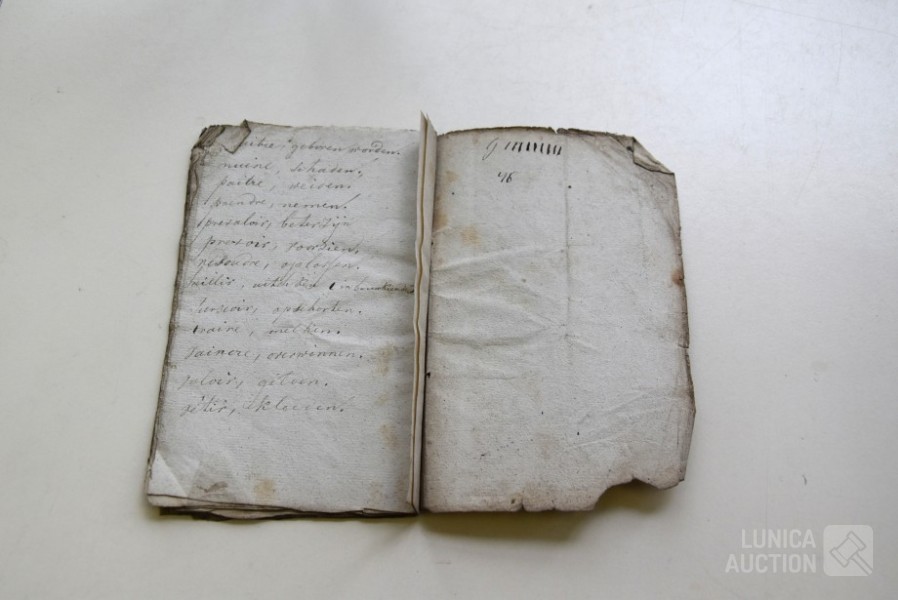 naitre, geboren worden.
nuire, schaden.
paitre, weiden.
prendre, nemen.
prevaloir, beter zijn
prevoir, voorzien.
resoudre, oplossen.
saillir, uitsteken
surseoir, opschorten.
traire, melken.
vaincre, overwinnen.
valoir, gelden.
vêtir, kleeden.
46
LUNICA
AUCTION